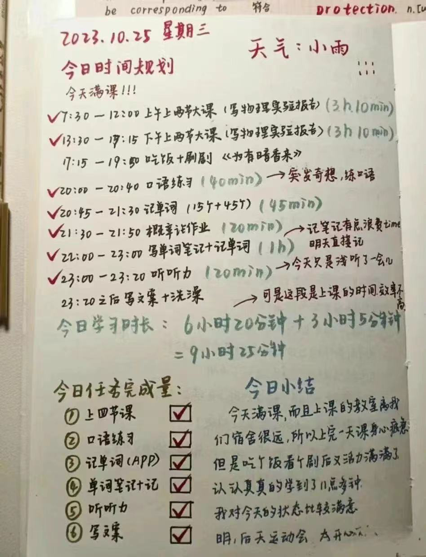 be corresponding to 符合
protection n.
2023.10.25 星期三
天气：小雨
今日时间规划
今天满课!!!
✓7:30—12:00 上午上两节大课（写物理实验报告）(3h10min)
✓13:30—17:15 下午上两节大课（写物理实验报告）(3h10min)
17:15—19:50 吃饭+刷剧《为有暗香来》
✓20:00—20:40 口语练习（40min）→突发奇想,练口语
✓20:45—21:30 记单词（15个+45个）（45min）
✓21:30—21:50 概率论作业（20min）
✓22:00—23:00 写单词笔记+记单词（1h）→记笔记有点浪费time 明天直接记
✓23:00—23:20 听听力（20min）→今天只是浅听了一会儿
23:20之后写文案+洗澡
→可是这段是上课的时间效率不高
今日学习时长：6小时20分钟+3小时5分钟
=9小时25分钟
今日任务完成量：
①上四节课 ✓
②口语练习 ✓
③记单词(APP) ✓
④单词笔记+记 ✓
⑤听听力 ✓
⑥写文案 ✓
今日小结
今天满课,而且上课的教室离我
们宿舍很远,所以上完一天课身心疲惫
但是吃个饭看个剧后又活力满满了
认认真真的学到了11点多钟
我对今天的状态比较满意
明,后天运动会